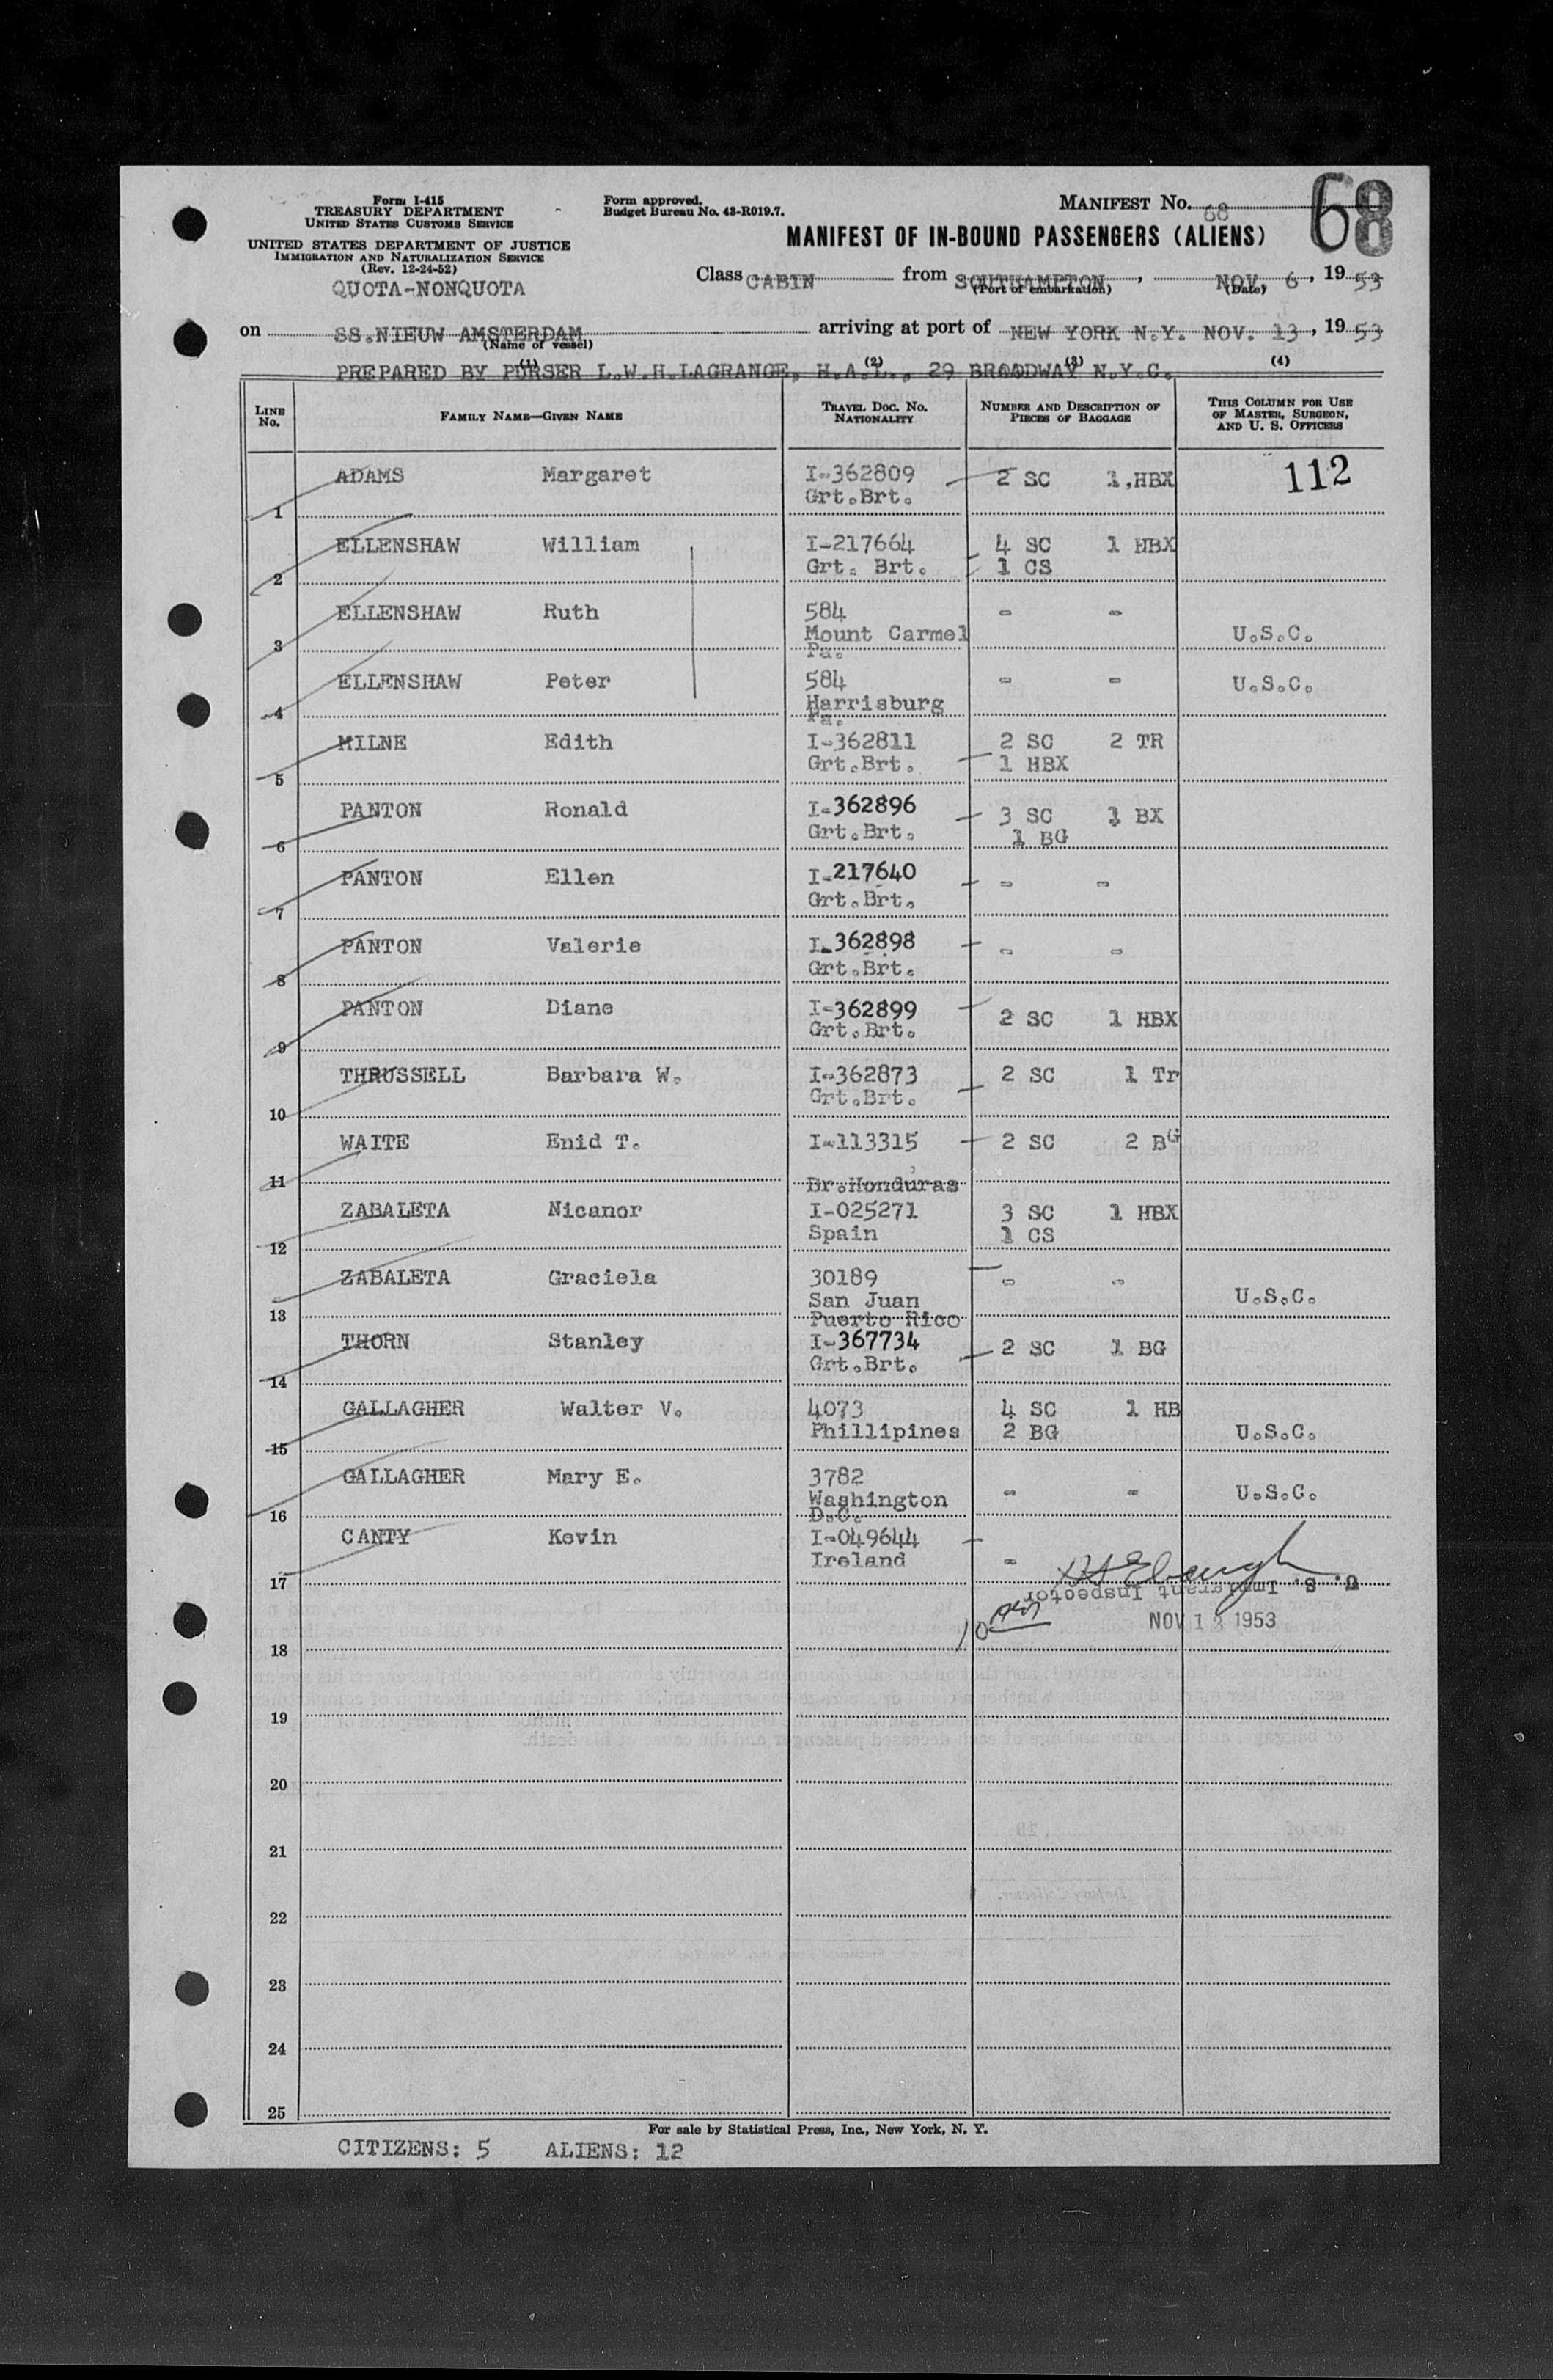 Form I-415
TREASURY DEPARTMENT
UNITED STATES CUSTOMS SERVICE
UNITED STATES DEPARTMENT OF JUSTICE
IMMIGRATION AND NATURALIZATION SERVICE
(Rev. 12-24-52)
QUOTA-NONQUOTA
Form approved.
Budget Bureau No. 43-R019.7.
MANIFEST No. 68
68
MANIFEST OF IN-BOUND PASSENGERS (ALIENS)
Class CABIN from SOUTHAMPTON, NOV. 6, 1953
(Port of embarkation) (Date)
on SS.NIEUW AMSTERDAM arriving at port of NEW YORK N.Y. NOV. 13, 1953
(Name of vessel)
(1) (2) (3) (4)
PREPARED BY PURSER L.W.H.LAGRANGE, H.A.L., 29 BROADWAY N.Y.C.
LINE No. FAMILY NAME—GIVEN NAME TRAVEL DOC. NO. NATIONALITY NUMBER AND DESCRIPTION OF PIECES OF BAGGAGE THIS COLUMN FOR USE OF MASTER, SURGEON, AND U. S. OFFICERS
ADAMS Margaret I-362809 2 SC 1,HBX 112
1 Grt.Brt.
ELLENSHAW William I-217664 4 SC 1 HBX
2 Grt. Brt. 1 CS
ELLENSHAW Ruth 584 - -
3 Mount Carmel U.S.C.
Pa.
ELLENSHAW Peter 584 - - U.S.C.
4 Harrisburg
Pa.
MILNE Edith I-362811 2 SC 2 TR
5 Grt.Brt. 1 HBX
PANTON Ronald I-362896 3 SC 1 BX
6 Grt.Brt. 1 BG
PANTON Ellen I-217640 - -
7 Grt.Brt.
PANTON Valerie I-362898 - -
8 Grt.Brt.
PANTON Diane I-362899 2 SC 1 HBX
9 Grt.Brt.
THRUSSELL Barbara W. I-362873 2 SC 1 Tr
10 Grt.Brt.
WAITE Enid T. I-113315 2 SC 2 BG
11 Br.Honduras
ZABALETA Nicanor I-025271 3 SC 1 HBX
12 Spain 1 CS
ZABALETA Graciela 30189 - -
13 San Juan U.S.C.
Puerto Rico
THORN Stanley I-367734 2 SC 1 BG
14 Grt.Brt.
GALLAGHER Walter V. 4073 4 SC 1 HB
15 Phillipines 2 BG U.S.C.
GALLAGHER Mary E. 3782 - - U.S.C.
16 Washington
D.C.
CANTY Kevin I-049644
17 Ireland -
U. S. Immigrant Inspector
NOV 13 1953
18
19
20
21
22
23
24
25
For sale by Statistical Press, Inc., New York, N. Y.
CITIZENS: 5 ALIENS: 12